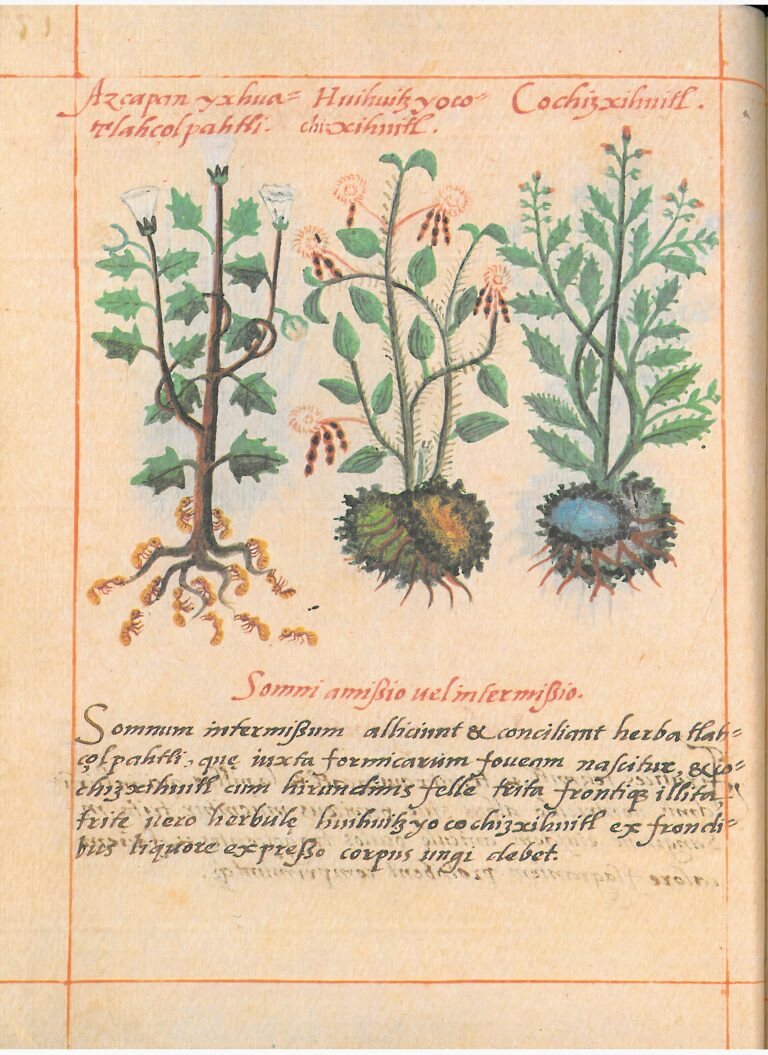 Azcapan yxhua= Huihuitzyoco= Cochizxihuitl.
tlahçolpahtli. chizxihuitl.
Somni amißio uel intermißio.
Somnum intermißum alliciunt & conciliant herba tlah=
çolpahtli, quę iuxta formicarum foueam nascitur, & co=
chizxihuitl cum hirundinis felle trita frontiq́ illita,
tritę uero herbulę huihuitzyocochizxihuitl ex frondi=
bus liquore expreßo corpus ungi debet.